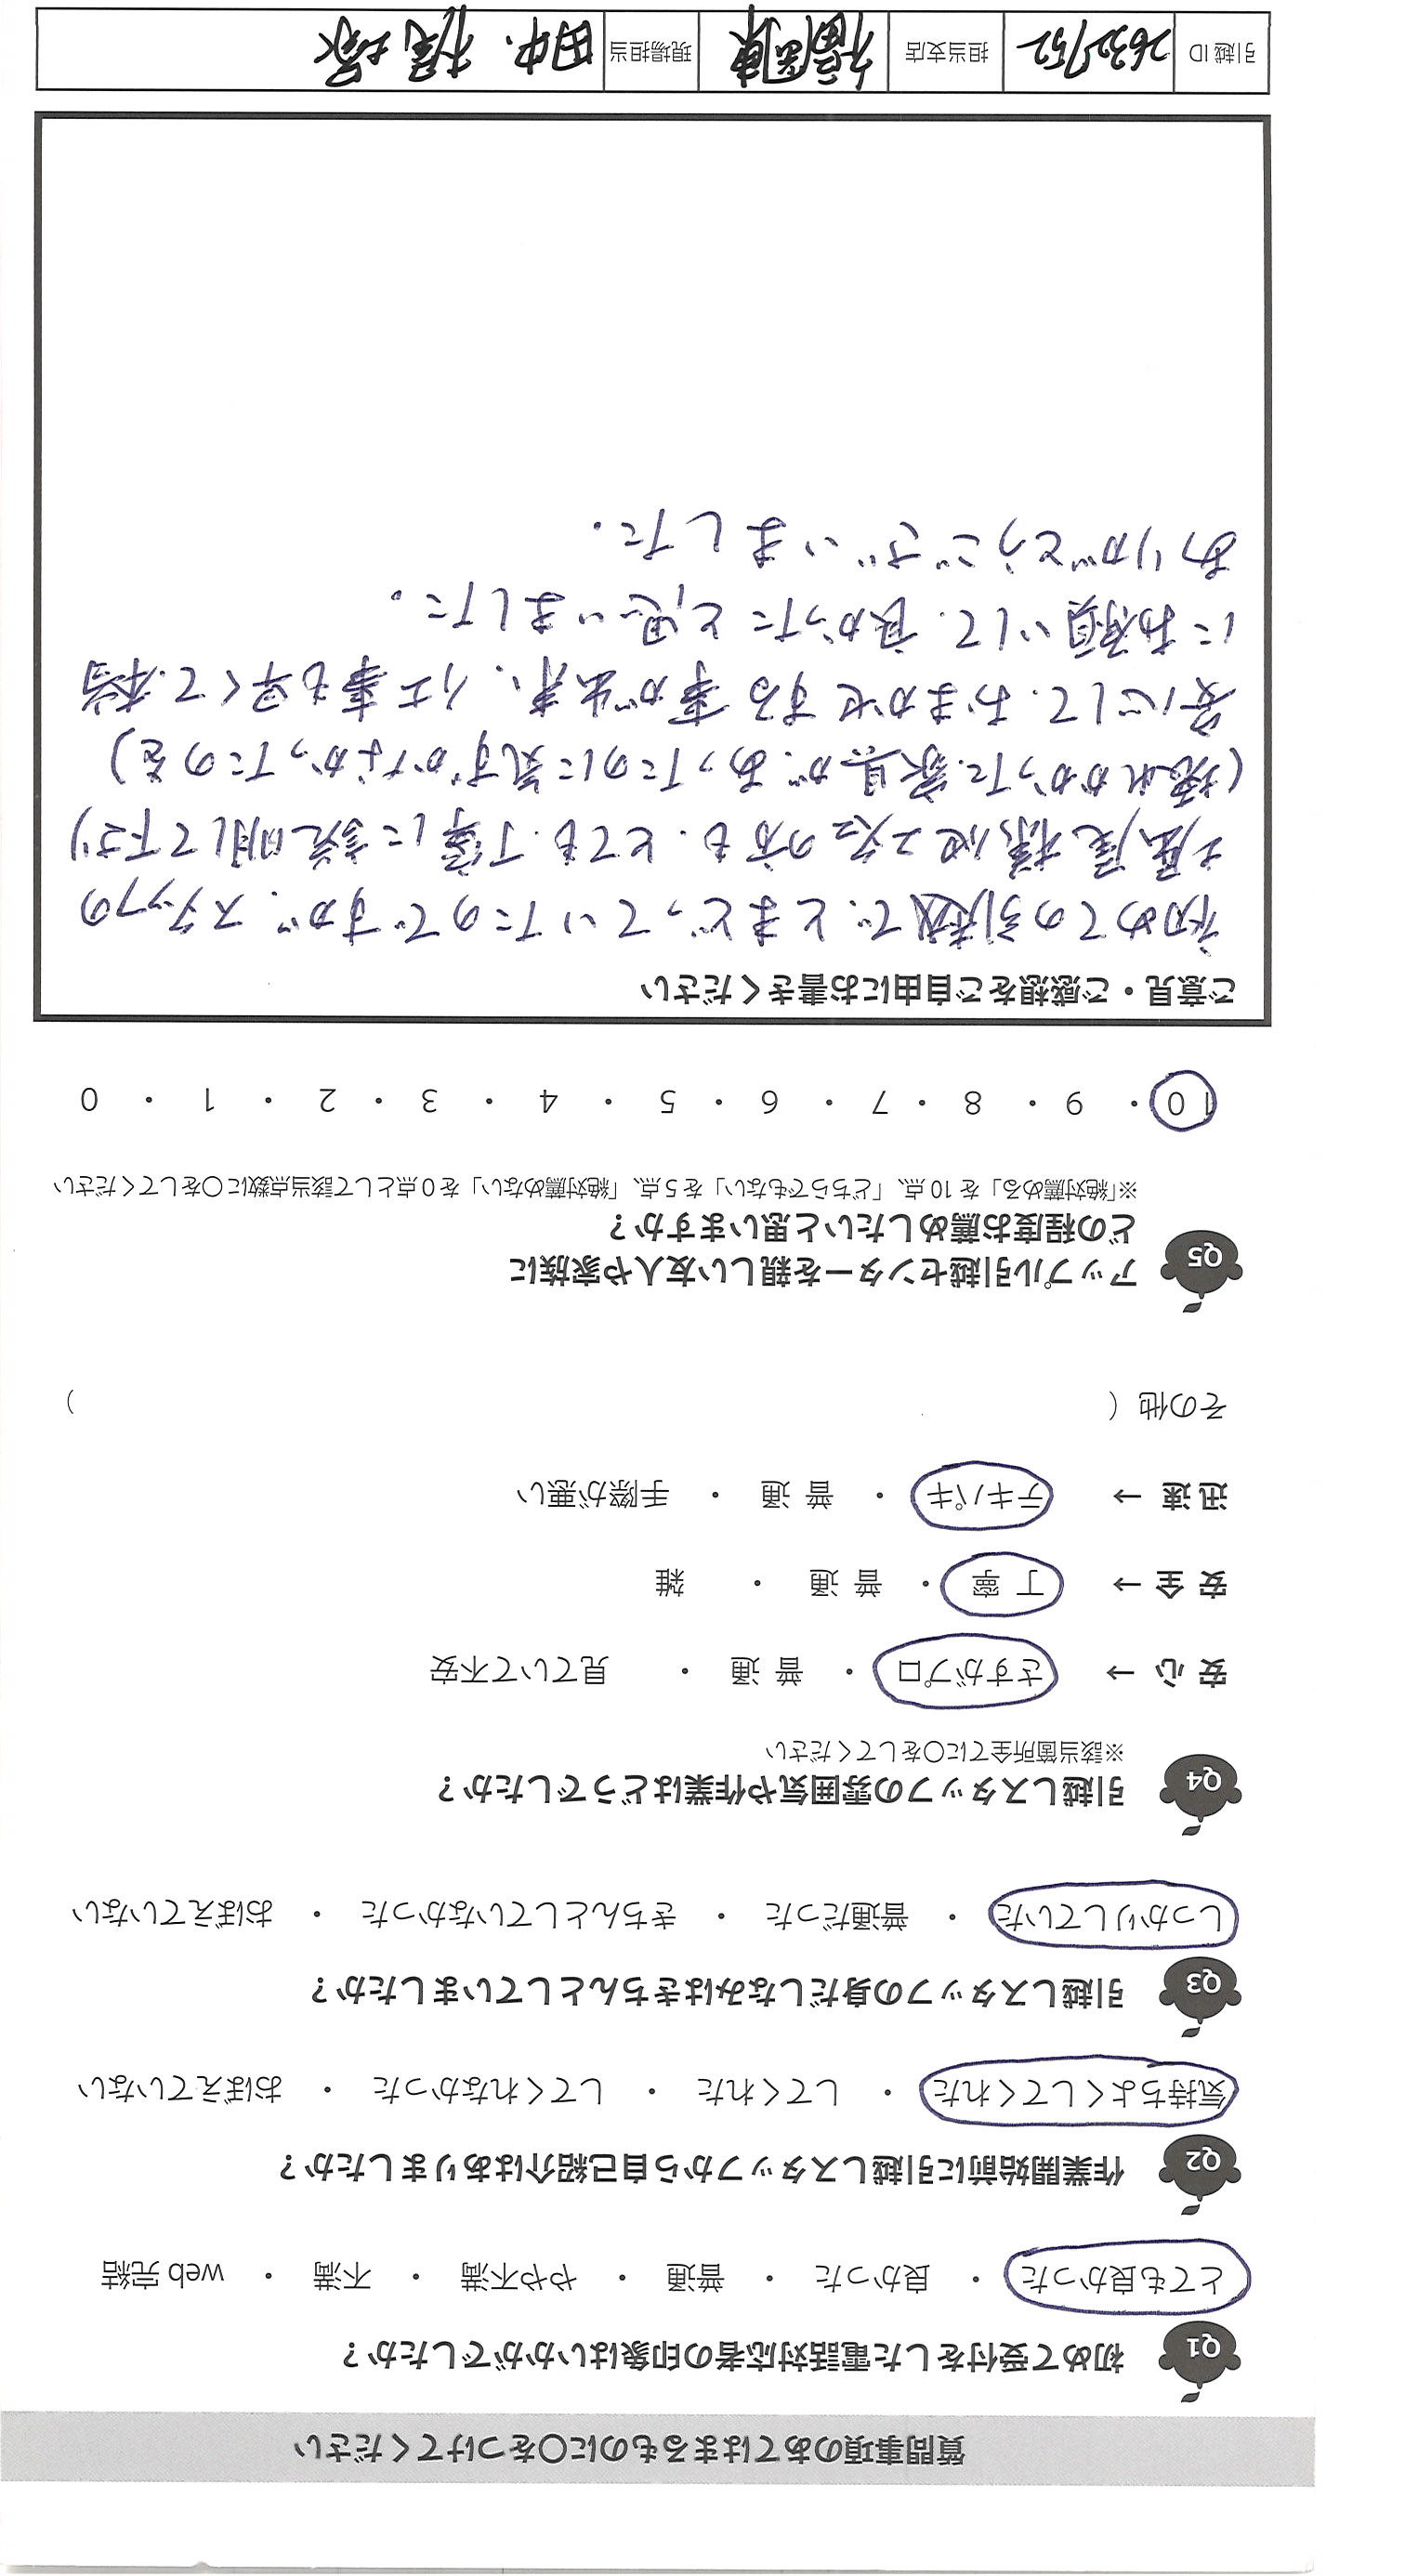 質問事項のあてはまるものに○をつけてください
Q1 初めて受付をした電話対応者の印象はいかがでしたか？
とても良かった ・ 良かった ・ 普通 ・ やや不満 ・ 不満 ・ web 完結
Q2 作業開始前に引越しスタッフから自己紹介はありましたか？
気持ちよくしてくれた ・ してくれた ・ してくれなかった ・ おぼえていない
Q3 引越しスタッフの身だしなみはきちんとしていましたか？
しっかりしていた ・ 普通だった ・ きちんとしていなかった ・ おぼえていない
Q4 引越しスタッフの雰囲気や作業はどうでしたか？
※該当箇所全てに○をしてください
安 心 → さすがプロ ・ 普 通 ・ 見ていて不安
安 全 → 丁 寧 ・ 普 通 ・ 雑
迅 速 → テキパキ ・ 普 通 ・ 手際が悪い
その他（ ）
Q5 アップル引越センターを親しい友人や家族に
どの程度お薦めしたいと思いますか？
※「絶対薦める」を 10 点、「どちらでもない」を 5 点、「絶対薦めない」を 0 点として該当点数に○をしてください
10 ・ 9 ・ 8 ・ 7 ・ 6 ・ 5 ・ 4 ・ 3 ・ 2 ・ 1 ・ 0
ご意見・ご感想をご自由にお書きください
初めての引越で、とまどっていたのですが、スタッフの
土屋様他2名の方も、とても丁寧に説明して下さり
(壊れかかった家具が、あったのに気ずかなかったのを)
安心して、おまかせする事が出来、仕事も早くて、本当
にお願いして、良かったと思いました。
ありがとうございました。
引越 ID 2632752 担当支店 福岡東 現場担当 田中、